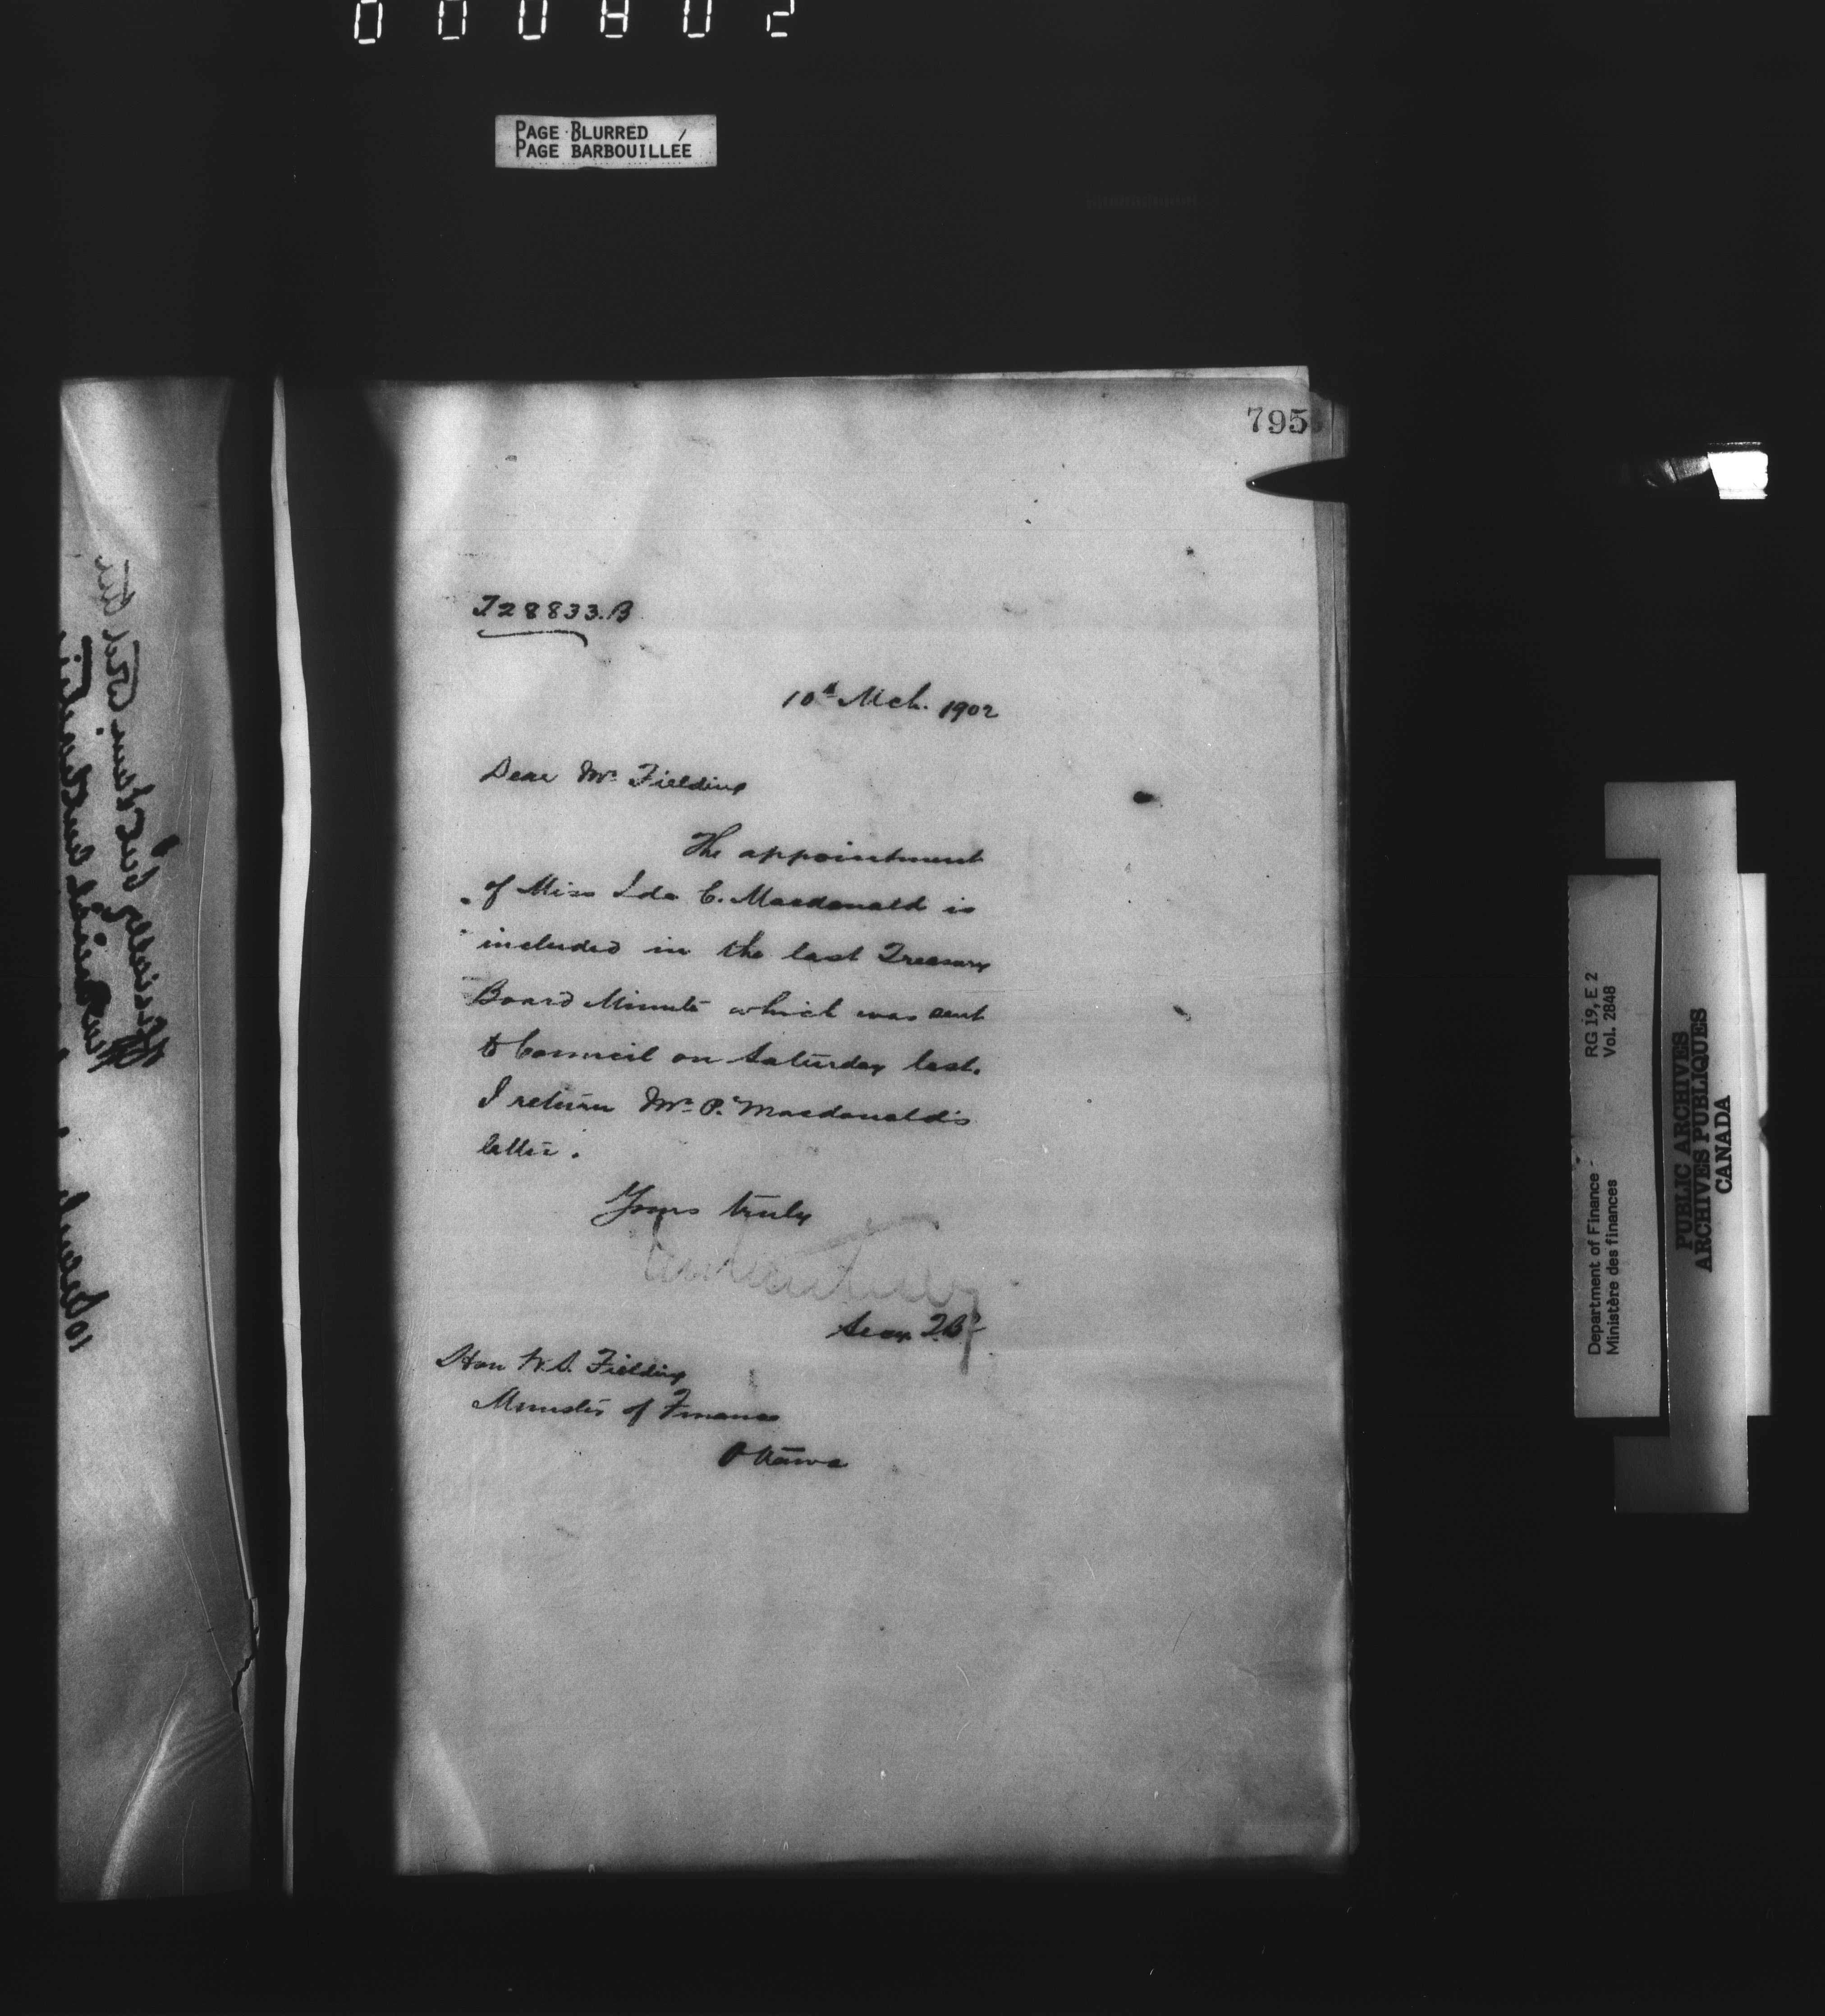 000802
PAGE BLURRED
PAGE BARBOUILLÉE
795
T 28833.B
10th Mch. 1902
Dear Mr. Fielding
The appointment
of Miss Ida C. Macdonald is
included in the last Treasury
Board Minute which was sent
to Council on Saturday last.
I return Mr. P. Macdonald's
letter.
Yours truly
Secy T.B.
Hon W.S. Fielding
Minister of Finance
Ottawa
Department of Finance - RG 19, E 2
Ministère des finances Vol. 2848
PUBLIC ARCHIVES
ARCHIVES PUBLIQUES
CANADA